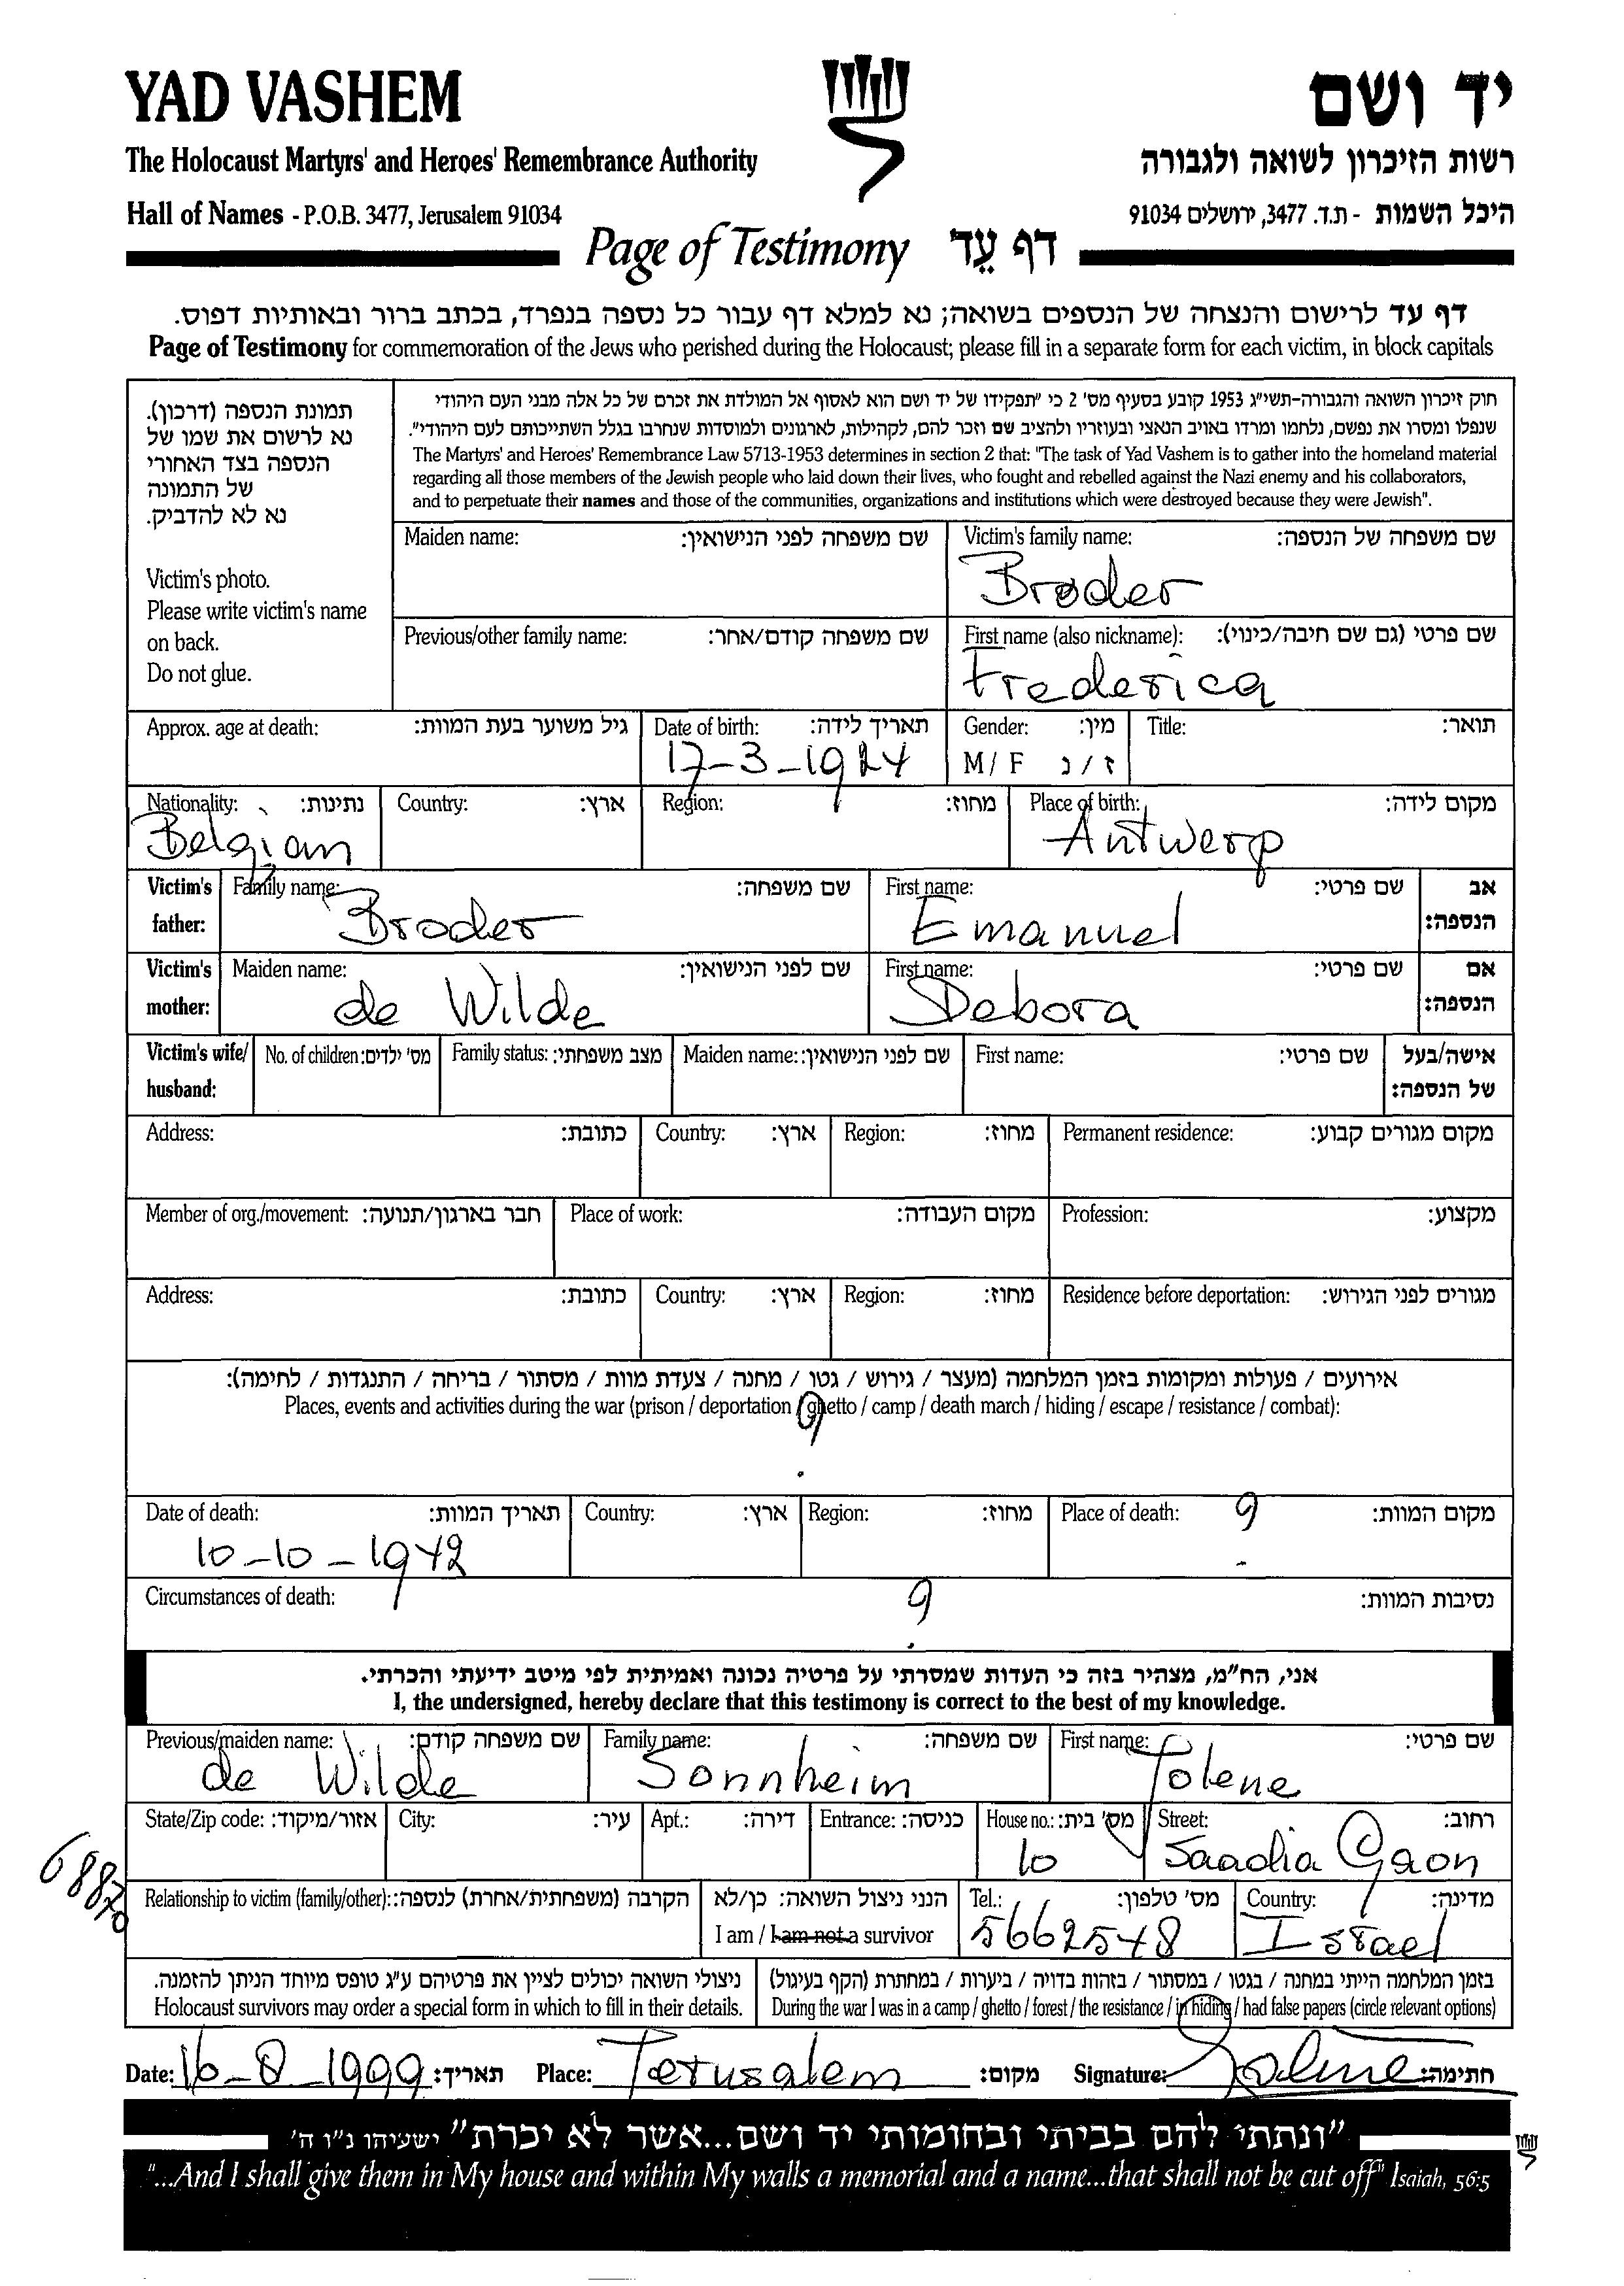 YAD VASHEM
יד ושם
The Holocaust Martyrs' and Heroes' Remembrance Authority
רשות הזיכרון לשואה ולגבורה
Hall of Names - P.O.B. 3477, Jerusalem 91034
היכל השמות - ת.ד. 3477, ירושלים 91034
Page of Testimony דף עֵד
דף עד לרישום והנצחה של הנספים בשואה; נא למלא דף עבור כל נספה בנפרד, בכתב ברור ובאותיות דפוס.
Page of Testimony for commemoration of the Jews who perished during the Holocaust; please fill in a separate form for each victim, in block capitals
תמונת הנספה (דרכון).
נא לרשום את שמו של
הנספה בצד האחורי
של התמונה
נא לא להדביק.
Victim's photo.
Please write victim's name
on back.
Do not glue.
חוק זיכרון השואה והגבורה-תשי"ג 1953 קובע בסעיף מס' 2 כי "תפקידו של יד ושם הוא לאסוף אל המולדת את זכרם של כל אלה מבני העם היהודי
שנפלו ומסרו את נפשם, נלחמו ומרדו באויב הנאצי ובעוזריו ולהציב שם וזכר להם, לקהילות, לארגונים ולמוסדות שנחרבו בגלל השתייכותם לעם היהודי".
The Martyrs' and Heroes' Remembrance Law 5713-1953 determines in section 2 that: "The task of Yad Vashem is to gather into the homeland material
regarding all those members of the Jewish people who laid down their lives, who fought and rebelled against the Nazi enemy and his collaborators,
and to perpetuate their names and those of the communities, organizations and institutions which were destroyed because they were Jewish".
Maiden name: שם משפחה לפני הנישואין:
Victim's family name: שם משפחה של הנספה:
Broder
Previous/other family name: שם משפחה קודם/אחר:
First name (also nickname): שם פרטי (גם שם חיבה/כינוי):
Frederica
Approx. age at death: גיל משוער בעת המוות:
Date of birth: תאריך לידה:
17-3-1924
Gender: מין:
M / F ז / נ
Title: תואר:
Nationality: נתינות:
Belgian
Country: ארץ:
Region: מחוז:
Place of birth: מקום לידה:
Antwerp
Victim's father:
Family name: שם משפחה:
Broder
First name: שם פרטי:
Emanuel
אב הנספה:
Victim's mother:
Maiden name: שם לפני הנישואין:
de Wilde
First name: שם פרטי:
Debora
אם הנספה:
Victim's wife/ husband:
No. of children: מס' ילדים:
Family status: מצב משפחתי:
Maiden name: שם לפני הנישואין:
First name: שם פרטי:
אישה/בעל של הנספה:
Address: כתובת:
Country: ארץ:
Region: מחוז:
Permanent residence: מקום מגורים קבוע:
Member of org./movement: חבר בארגון/תנועה:
Place of work: מקום העבודה:
Profession: מקצוע:
Address: כתובת:
Country: ארץ:
Region: מחוז:
Residence before deportation: מגורים לפני הגירוש:
אירועים / פעולות ומקומות בזמן המלחמה (מעצר / גירוש / גטו / מחנה / צעדת מוות / מסתור / בריחה / התנגדות / לחימה):
Places, events and activities during the war (prison / deportation / ghetto / camp / death march / hiding / escape / resistance / combat):
?
Date of death: תאריך המוות:
10-10-1942
Country: ארץ:
Region: מחוז:
Place of death: מקום המוות:
?
Circumstances of death: נסיבות המוות:
?
אני, הח"מ, מצהיר בזה כי העדות שמסרתי על פרטיה נכונה ואמיתית לפי מיטב ידיעתי והכרתי.
I, the undersigned, hereby declare that this testimony is correct to the best of my knowledge.
Previous/maiden name: שם משפחה קודם:
de Wilde
Family name: שם משפחה:
Sonnheim
First name: שם פרטי:
Jolene
State/Zip code: אזור/מיקוד:
68870
City: עיר:
Apt.: דירה:
Entrance: כניסה:
House no.: מס' בית:
10
Street: רחוב:
Saadia Gaon
Relationship to victim (family/other): הקרבה (משפחתית/אחרת) לנספה:
הנני ניצול השואה: כן/לא
I am / I am not a survivor
Tel.: מס' טלפון:
5662548
Country: מדינה:
Israel
ניצולי השואה יכולים לציין את פרטיהם ע"ג טופס מיוחד הניתן להזמנה.
Holocaust survivors may order a special form in which to fill in their details.
בזמן המלחמה הייתי במחנה / בגטו / במסתור / בזהות בדויה / ביערות / במחתרת (הקף בעיגול)
During the war I was in a camp / ghetto / forest / the resistance / in hiding / had false papers (circle relevant options)
Date: 16-8-1999 תאריך: Place: Jerusalem מקום: Signature: חתימה:
"ונתתי להם בביתי ובחומותי יד ושם...אשר לא יכרת" ישעיהו נ"ו ה'
"...And I shall give them in My house and within My walls a memorial and a name...that shall not be cut off" Isaiah, 56:5